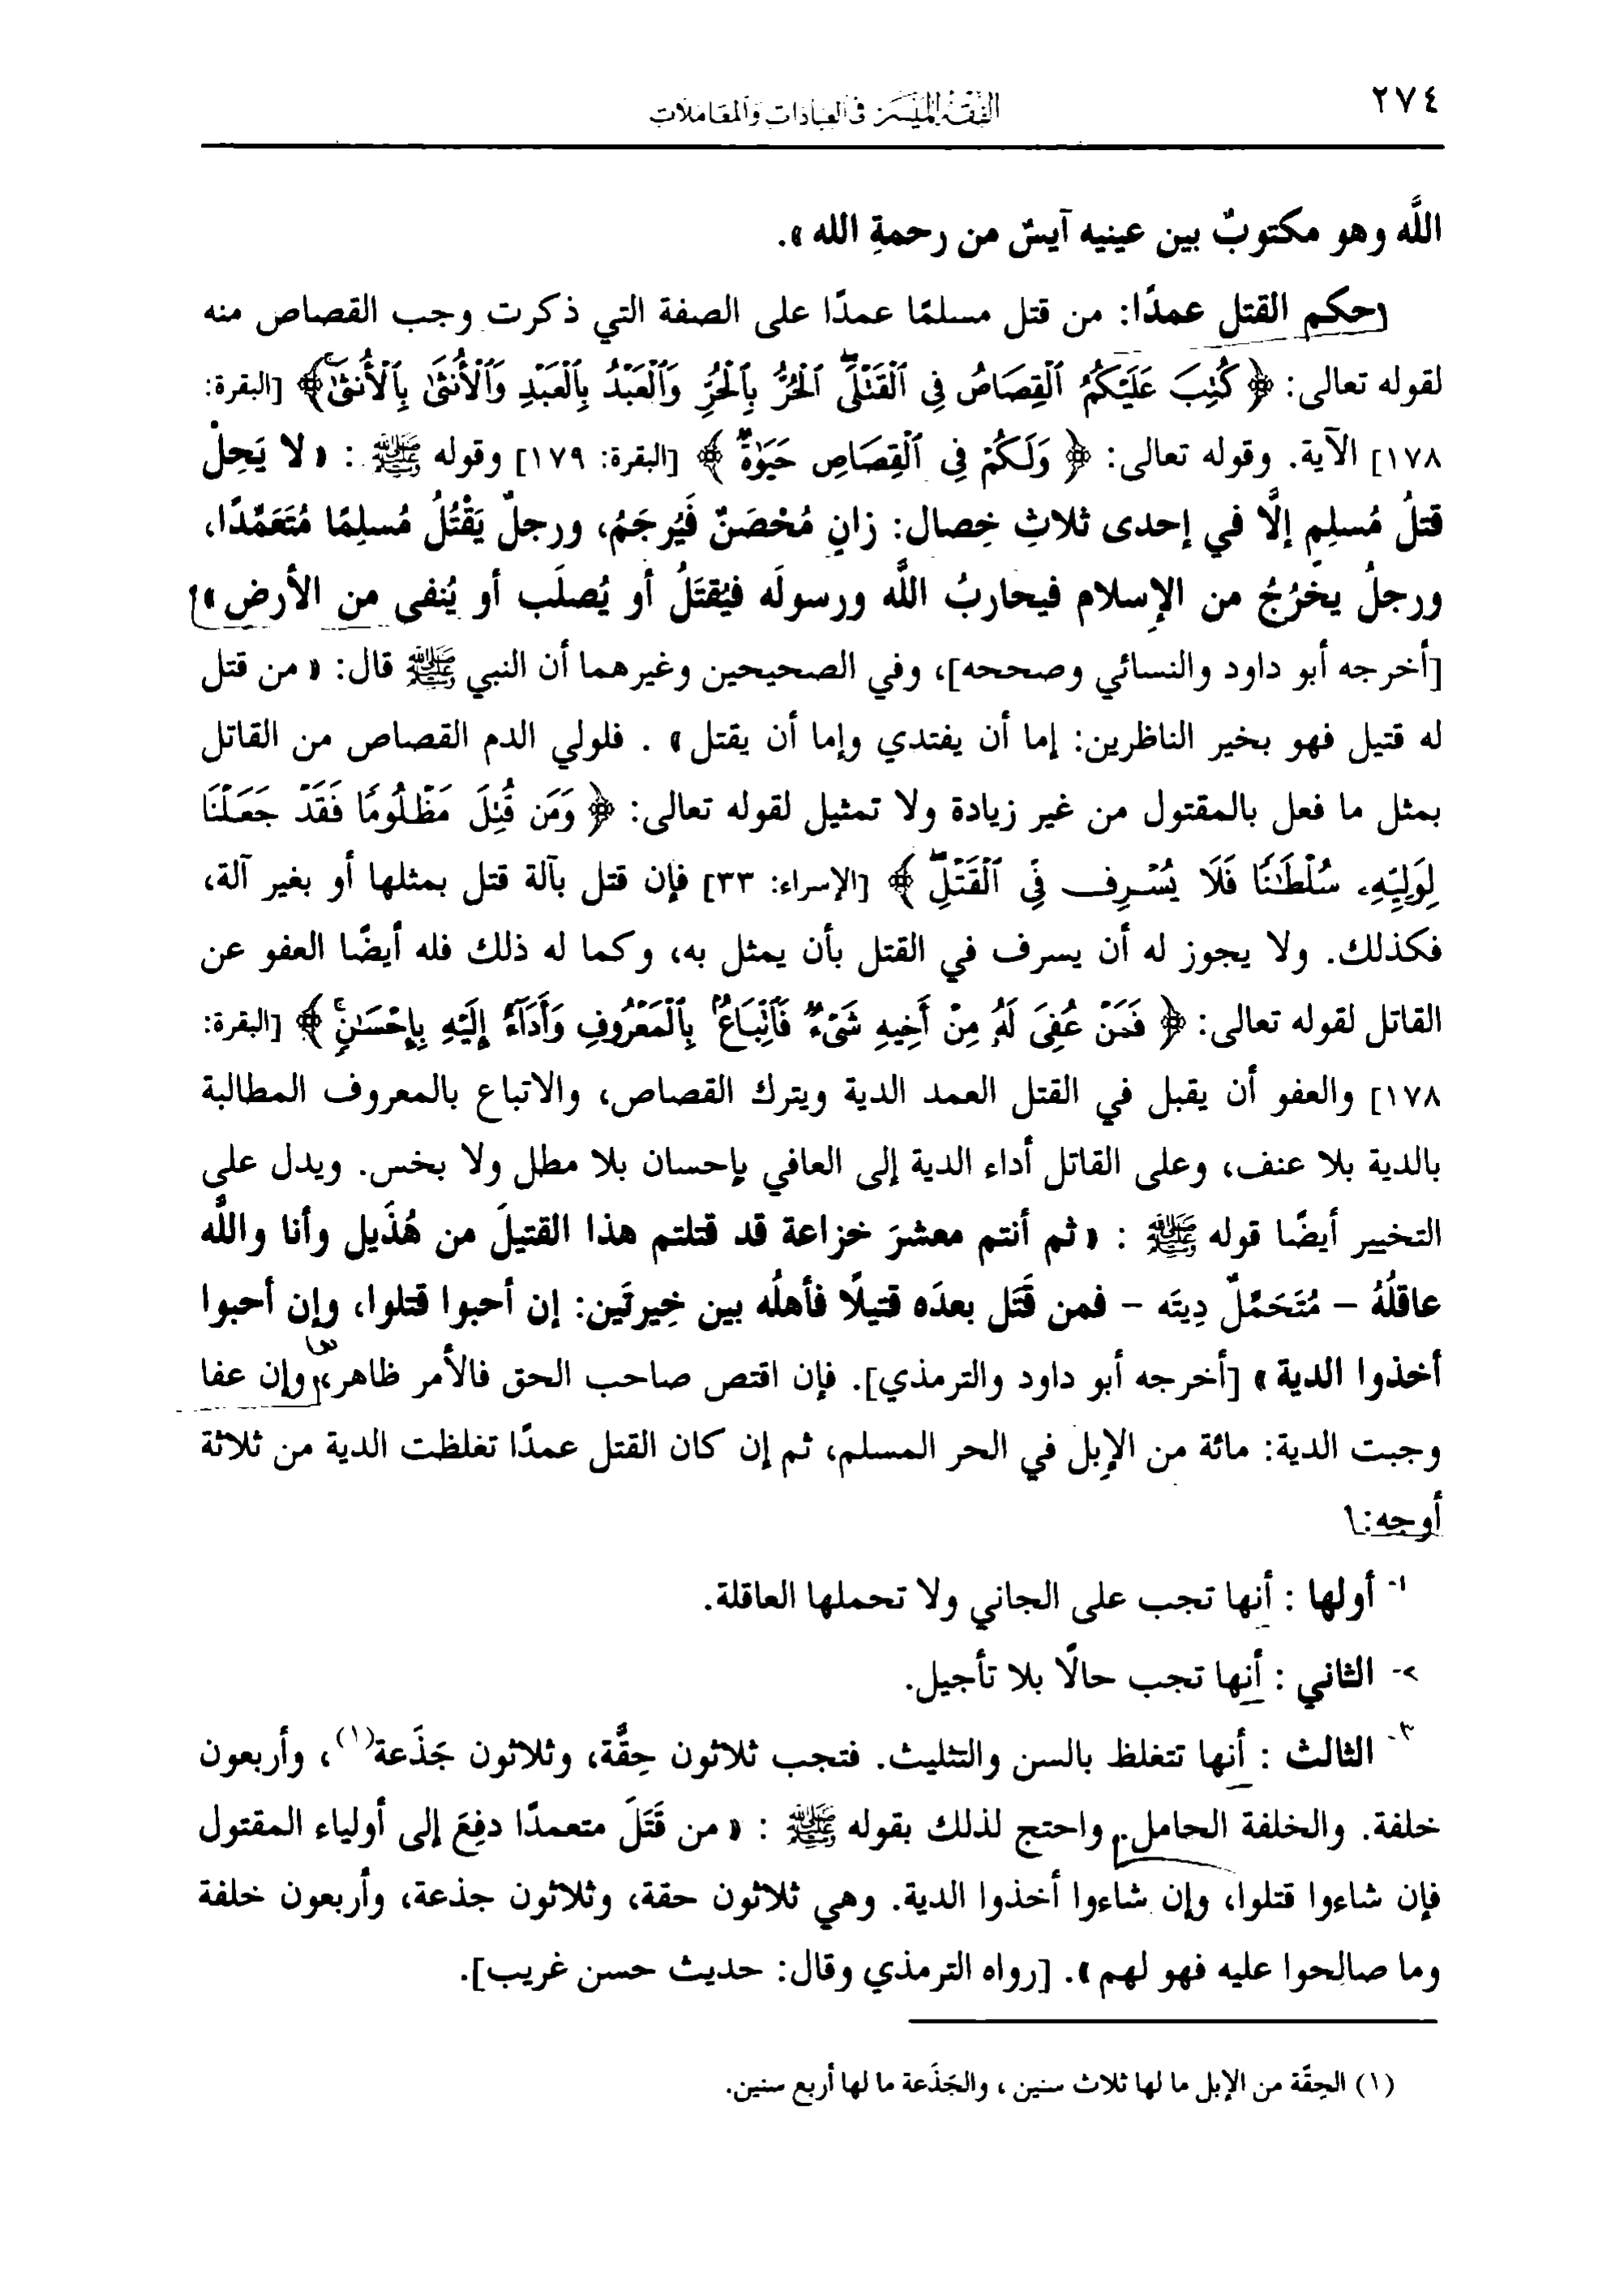 ٢٧٤
الفقه الميسر في العبادات والمعاملات
اللَّه وهو مكتوبٌ بين عينيه آيسٌ من رحمةِ الله».
حكم القتل عمدًا: من قتل مسلمًا عمدًا على الصفة التي ذكرت وجب القصاص منه
لقوله تعالى: ﴿ كُتِبَ عَلَيْكُمُ ٱلْقِصَاصُ فِى ٱلْقَتْلَىۖ ٱلْحُرُّ بِٱلْحُرِّ وَٱلْعَبْدُ بِٱلْعَبْدِ وَٱلْأُنثَىٰ بِٱلْأُنثَىٰۚ ﴾ [البقرة:
١٧٨] الآية. وقوله تعالى: ﴿ وَلَكُمْ فِى ٱلْقِصَاصِ حَيَوٰةٌ ﴾ [البقرة: ١٧٩] وقوله ﷺ : « لا يَحِلُ
قتلُ مُسلِمٍ إلَّا في إحدى ثلاثِ خِصال: زانٍ مُحْصَنٌ فَيُرجَمُ، ورجلٌ يَقْتُلُ مُسلِمًا مُتَعَمِّدًا،
ورجلُ يخرُجُ من الإسلام فيحاربُ اللَّه ورسولَه فيُقتَلُ أو يُصلَب أو يُنفى من الأرض »
[أخرجه أبو داود والنسائي وصححه]، وفي الصحيحين وغيرهما أن النبي ﷺ قال: « من قتل
له قتيل فهو بخير الناظرين: إما أن يفتدي وإما أن يقتل » . فلولي الدم القصاص من القاتل
بمثل ما فعل بالمقتول من غير زيادة ولا تمثيل لقوله تعالى: ﴿ وَمَن قُتِلَ مَظْلُومًا فَقَدْ جَعَلْنَا
لِوَلِيِّهِۦ سُلْطَٰنًا فَلَا يُسْرِف فِّى ٱلْقَتْلِۖ ﴾ [الإسراء: ٣٣] فإن قتل بآلة قتل بمثلها أو بغير آلة،
فكذلك. ولا يجوز له أن يسرف في القتل بأن يمثل به، وكما له ذلك فله أيضًا العفو عن
القاتل لقوله تعالى: ﴿ فَمَنْ عُفِىَ لَهُۥ مِنْ أَخِيهِ شَىْءٌ فَٱتِّبَاعٌۢ بِٱلْمَعْرُوفِ وَأَدَآءٌ إِلَيْهِ بِإِحْسَٰنٍۗ ﴾ [البقرة:
١٧٨] والعفو أن يقبل في القتل العمد الدية ويترك القصاص، والاتباع بالمعروف المطالبة
بالدية بلا عنف، وعلى القاتل أداء الدية إلى العافي بإحسان بلا مطل ولا بخس. ويدل على
التخيير أيضًا قوله ﷺ : « ثم أنتم معشرَ خزاعة قد قتلتم هذا القتيلَ من هُذَيل وأنا واللَّه
عاقلُهُ – مُتَحَمِّلٌ دِيتَه – فمن قَتَل بعدَه قتيلًا فأهلُه بين خِيرتَين: إن أحبوا قتلوا، وإن أحبوا
أخذوا الدية » [أخرجه أبو داود والترمذي]. فإن اقتص صاحب الحق فالأمر ظاهر، وإن عفا
وجبت الدية: مائة من الإبل في الحر المسلم، ثم إن كان القتل عمدًا تغلظت الدية من ثلاثة
أوجه:
١- أولها : أنها تجب على الجاني ولا تحملها العاقلة.
٢- الثاني : أنها تجب حالًا بلا تأجيل.
٣- الثالث : أنها تتغلظ بالسن والتثليث. فتجب ثلاثون حِقَّة، وثلاثون جَذَعة(١)، وأربعون
خلفة. والخلفة الحامل. واحتج لذلك بقوله ﷺ : « من قَتَلَ متعمدًا دفِعَ إلى أولياء المقتول
فإن شاءوا قتلوا، وإن شاءوا أخذوا الدية. وهي ثلاثون حقة، وثلاثون جذعة، وأربعون خلفة
وما صالحوا عليه فهو لهم ». [رواه الترمذي وقال: حديث حسن غريب].
(١) الحِقَّة من الإبل ما لها ثلاث سنين ، والجَذَعة ما لها أربع سنين.